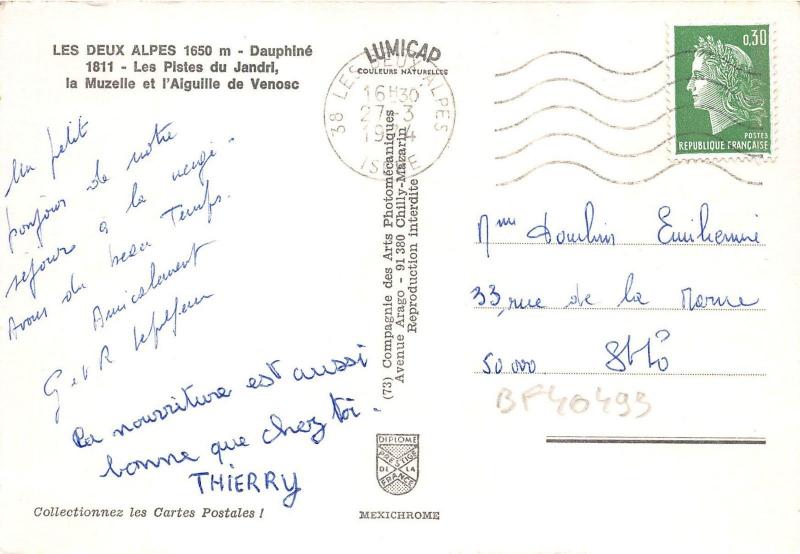 LES DEUX ALPES 1650 m - Dauphiné
1811 - Les Pistes du Jandri,
la Muzelle et l'Aiguille de Venosc
Un petit
bonjour de notre
séjour à la neige.
Avons du beau Temps.
Amicalement
G et R
La nourriture est aussi
bonne que chez toi.
THIERRY
Collectionnez les Cartes Postales !
LUMICAP
COULEURS NATURELLES
38 LES DEUX ALPES
16H30
27-3
1974
ISERE
(73) Compagnie des Arts Photomécaniques
Avenue Arago - 91 380 Chilly-Mazarin
Reproduction Interdite
DIPLOME
PRESTIGE
DE LA
FRANCE
MEXICHROME
0,30
POSTES
REPUBLIQUE FRANÇAISE
Mme
33, rue de la Marne
50 000 St Lô
BF40493